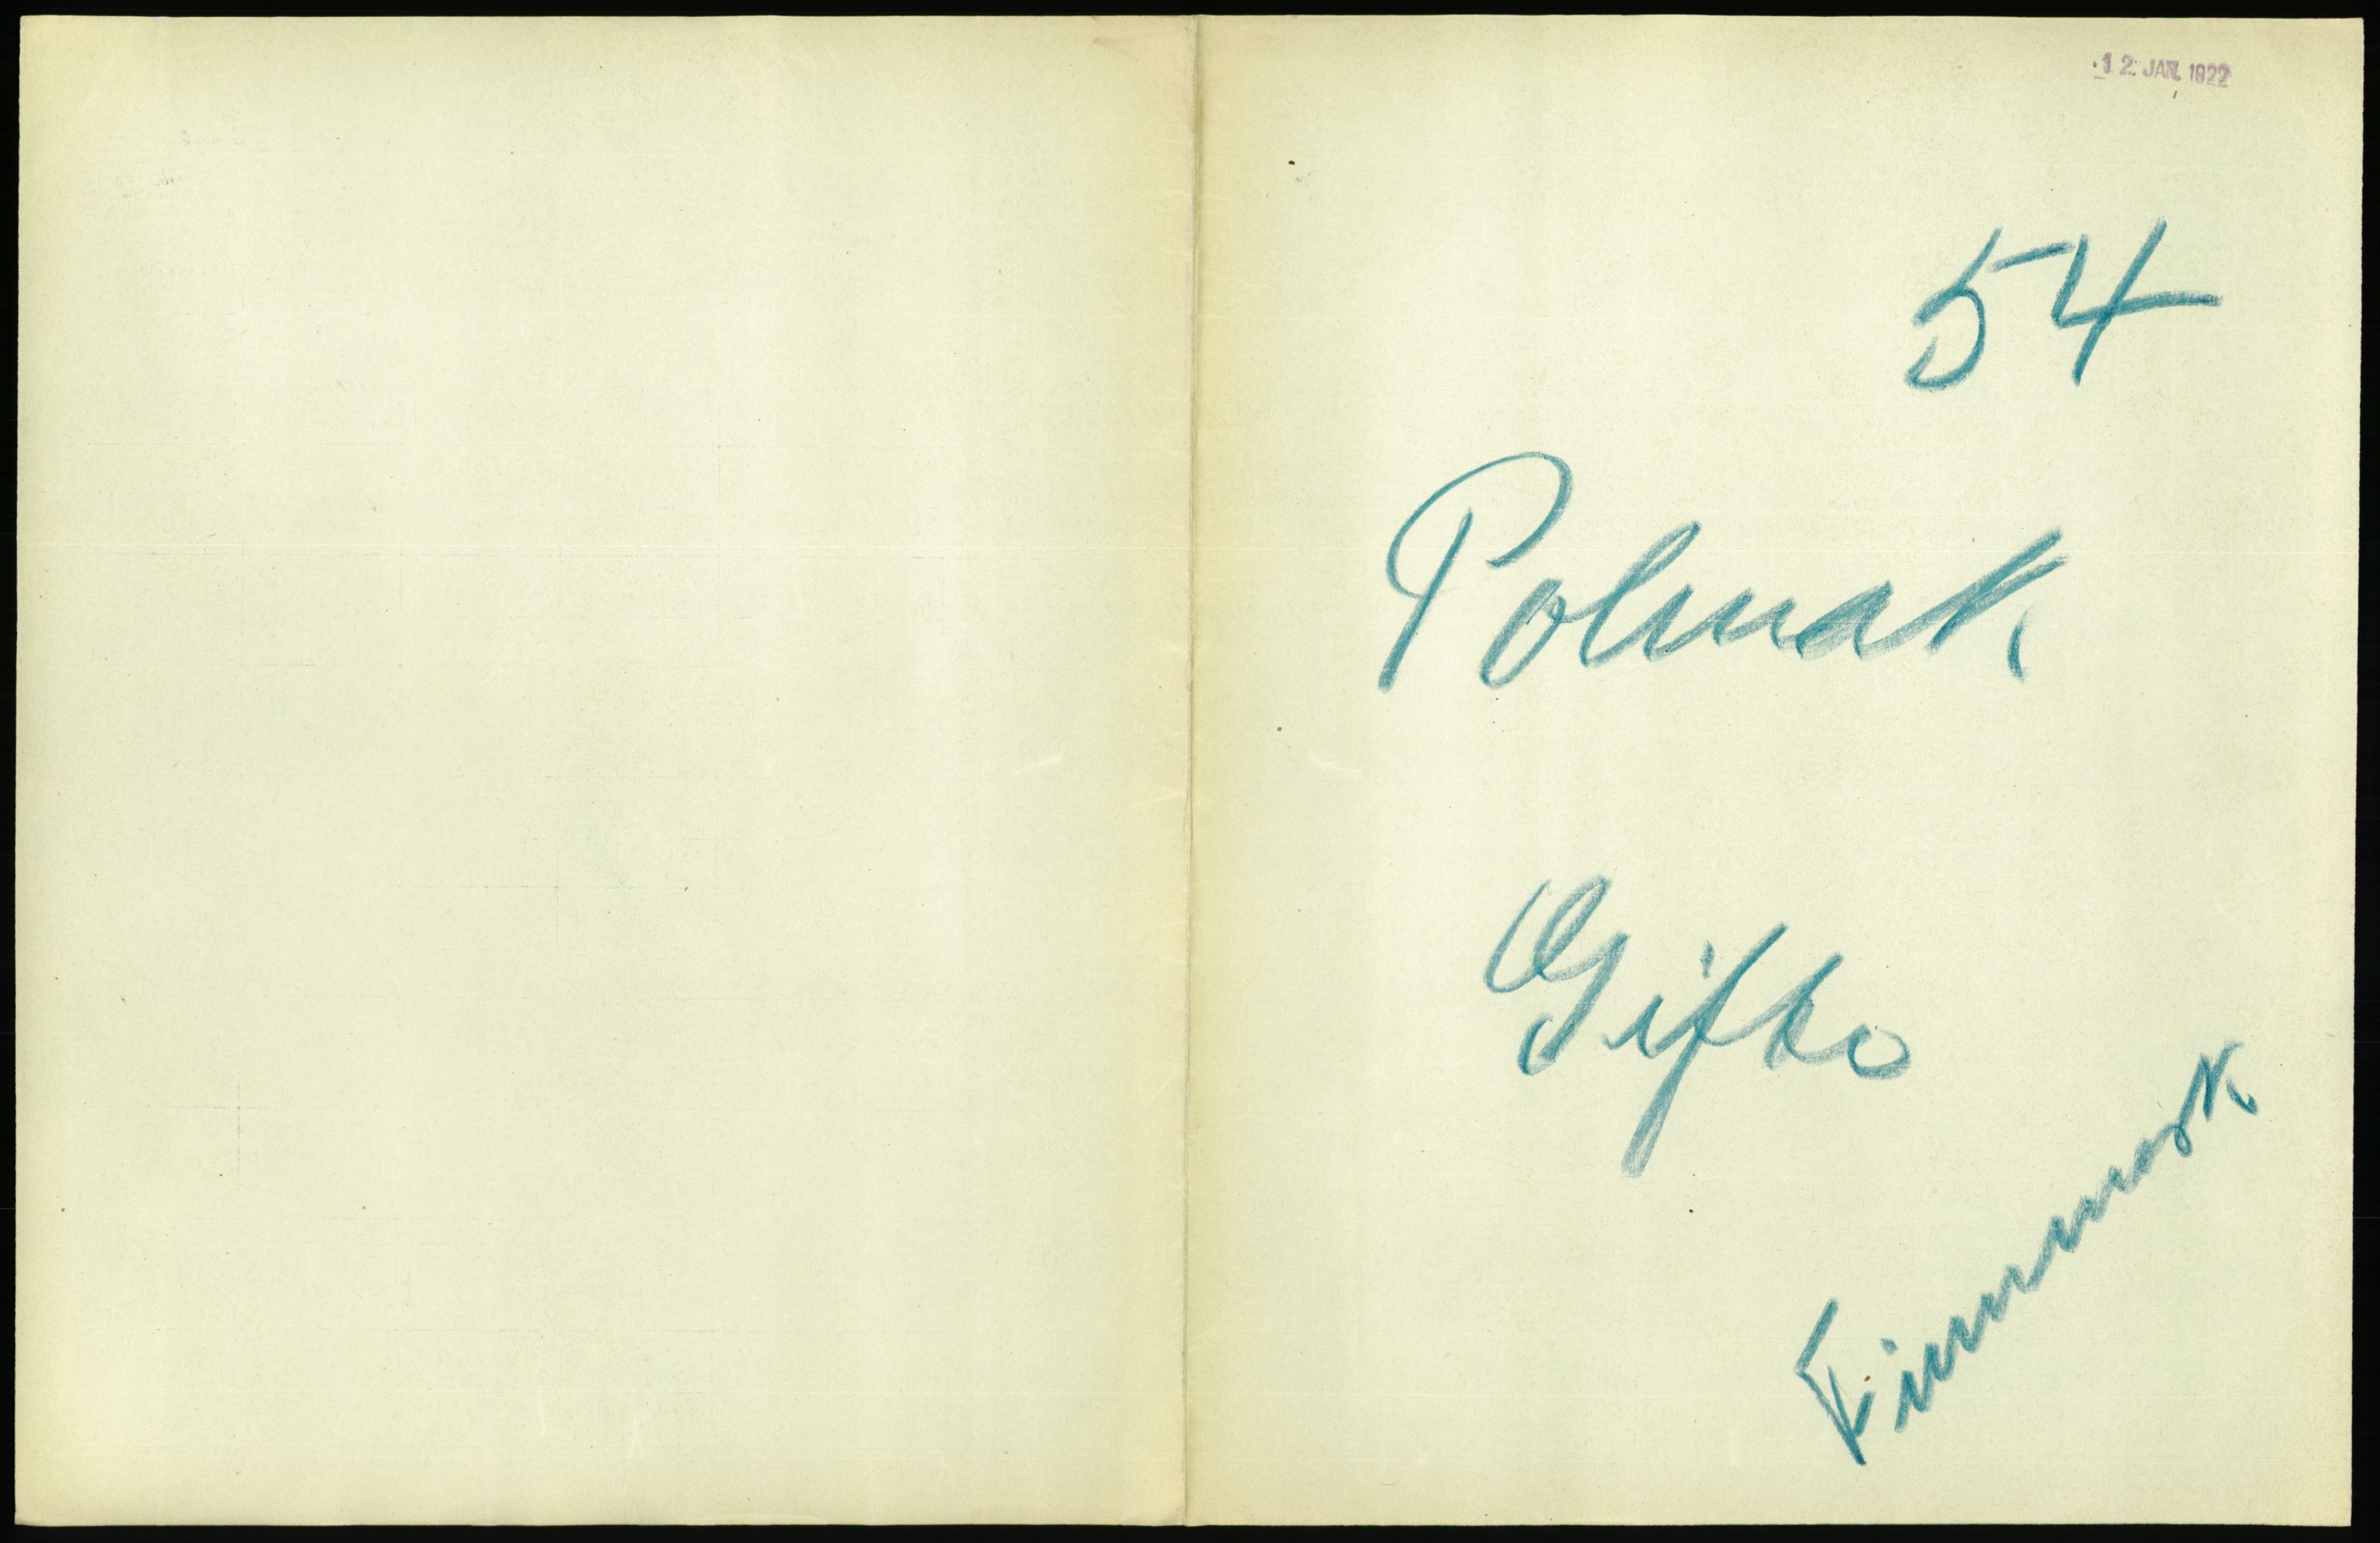 12 JAN. 1922
54
Polmak
Gifte
Finnmark